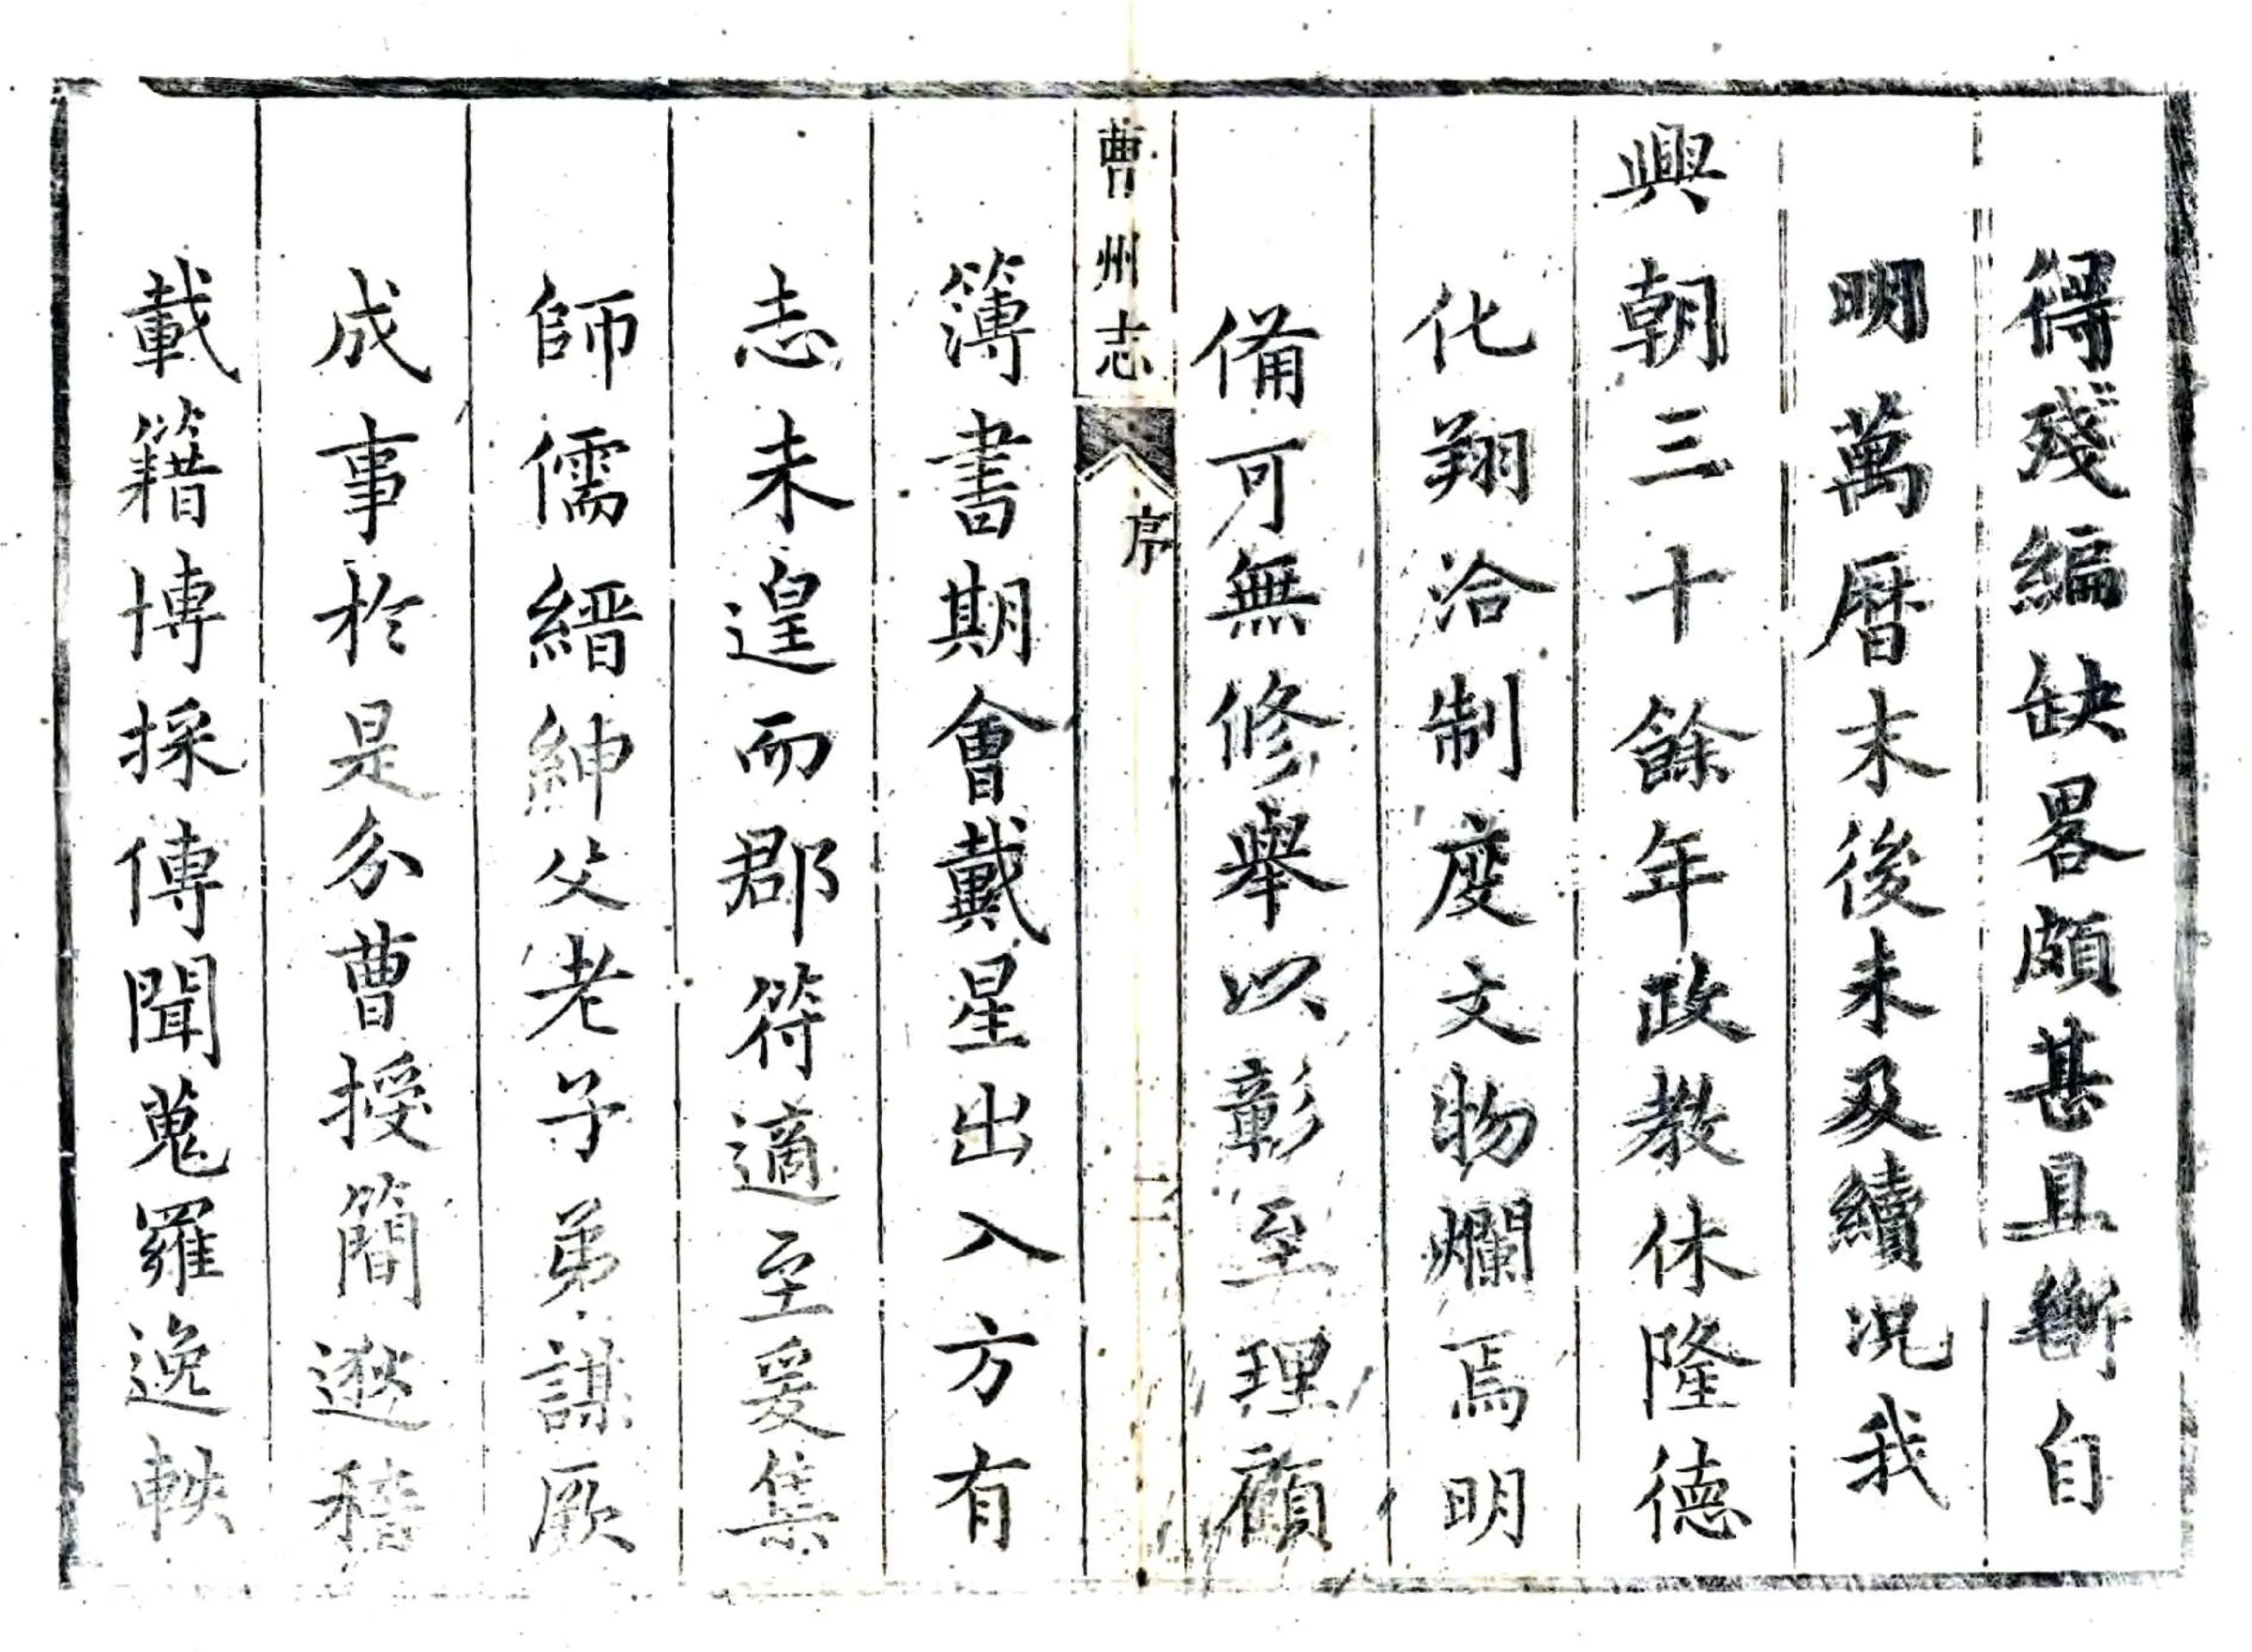 得殘編缺畧頗甚且斷自
明萬曆末後未及續況我
興朝三十餘年政教休隆德
化翔洽制度文物爛焉明
備可無修舉以彰至理顧
曹州志
序
二
簿書期會戴星出入方有
志未遑而郡符適至爰集
師儒縉紳父老子弟謀厥
成事於是分曹授簡遬稽
載籍博採傳聞蒐羅逸軼